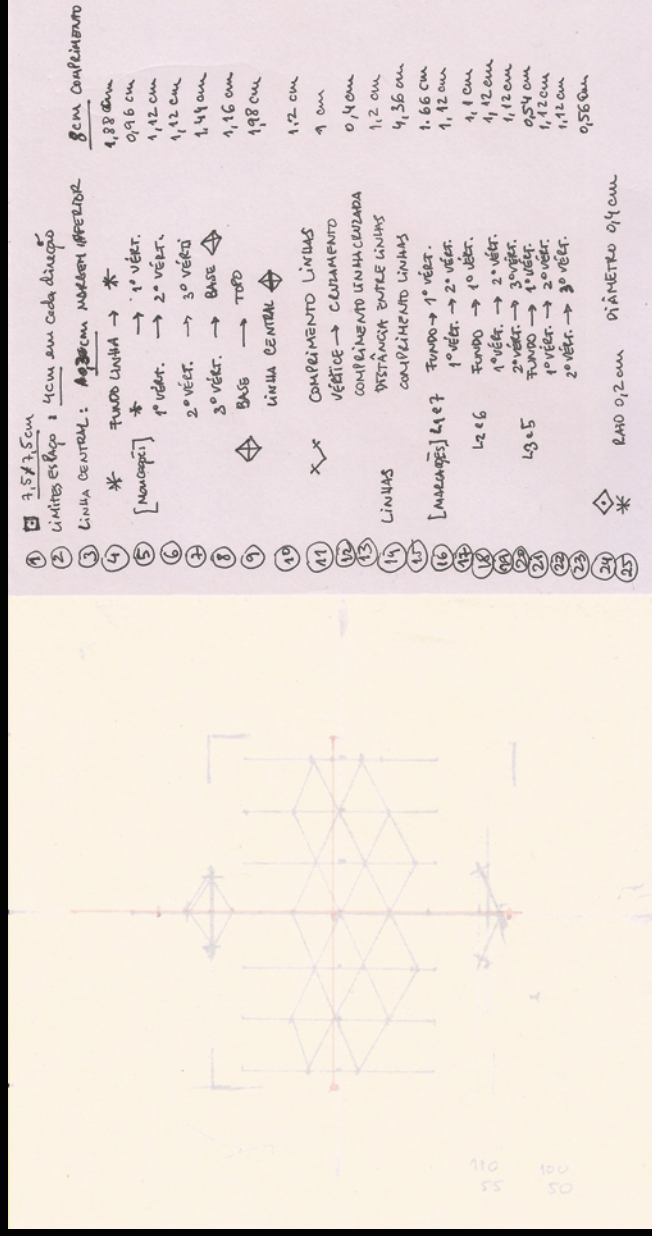 ① ⊡ 7,5x7,5cm
② LiMiTES ESPAÇO : 4cm em cada direção
③ LiNHA CENTRAL : cm MARGEM iNFERiOR 8cm COMPRIMENTO
④ * FUNDO LiNHA → * 1,88 cm
⑤ * → 1º VÉRT. 0,96 cm
⑥ 1º VÉRT. → 2º VÉRT. 1,12 cm
⑦ 2º VÉRT. → 3º VÉRT. 1,12 cm
⑧ 3º VÉRT. → BASE 1,44 cm
⑨ BASE → TOPO 1,16 cm
⑩ LiNHA CENTRAL 1,98 cm
⑪ COMPRiMENTO LiNHAS 1.2 cm
⑫ VÉRTiCE → CRUZAMENTO 1 cm
⑬ COMPRiMENTO LiNHA CRUZADA 0,4 cm
⑭ LiNHAS DiSTÂNCiA ENTRE LiNHAS 1,2 cm
⑮ COMPRiMENTO LiNHAS 4,36 cm
⑯ [MARCAÇÕES] L1 e 7 FUNDO → 1º VÉRT. 1.66 cm
⑰ 1º VÉRT. → 2º VÉRT. 1,12 cm
⑱ L2 e 6 FUNDO → 1º VÉRT. 1,1 cm
⑲ 1º VÉRT. → 2º VÉRT. 1,12 cm
⑳ 2º VÉRT. → 3º VÉRT. 1,12 cm
㉑ L3 e 5 FUNDO → 1º VÉRT. 0,54 cm
㉒ 1º VÉRT. → 2º VÉRT. 1,12 cm
㉓ 2º VÉRT. → 3º VÉRT. 1,12 cm
0,56 cm
㉔
㉕ * RAIO 0,2 cm DiÂMETRO 0,4 cm
110 100
55 50